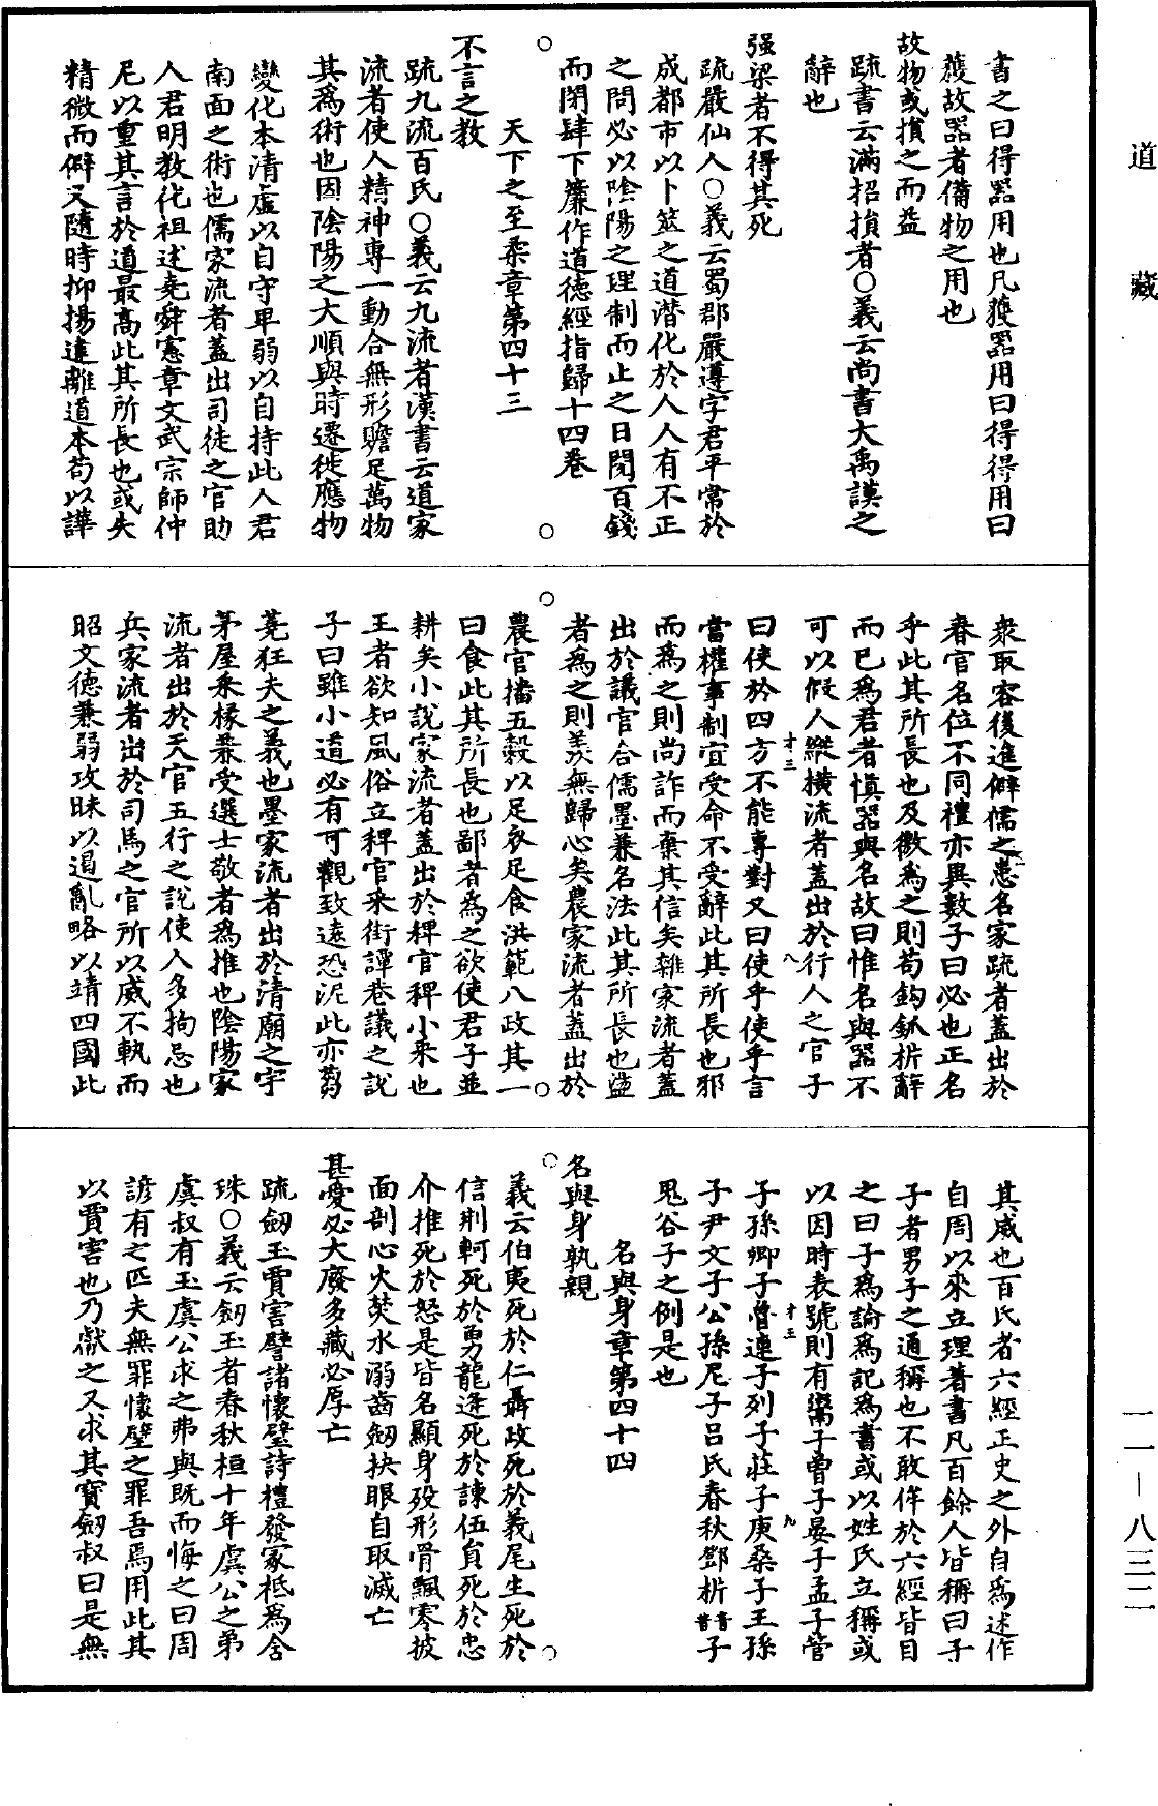 道藏
書之曰得器用也凡獲器用曰得得用曰
獲故器者備物之用也
故物或損之而益
疏書云滿招損者○義云尚書大禹謨之
辭也
强梁者不得其死
疏嚴仙人○義云蜀郡嚴遵字君平常於
成都市以卜筮之道潛化於人人有不正
之問必以陰陽之理制而止之日閱百錢
而閉肆下簾作道德經指歸十四卷
天下之至柔章第四十三
不言之教
疏九流百氏○義云九流者漢書云道家
流者使人精神專一動合無形贍足萬物
其為術也因陰陽之大順與時遷徙應物
變化本清虛以自守卑弱以自持此人君
南面之術也儒家流者蓋出司徒之官助
人君明教化祖述堯舜憲章文武宗師仲
尼以重其言於道最高此其所長也或失
精微而僻又隨時抑揚違離道本苟以譁
衆取容後進僻儒之患名家䟽者蓋出於
春官名位不同禮亦異數子曰必也正名
乎此其所長也及徼為之則苟鈎釽析辭
而已為君者慎器與名故曰惟名與器不
可以假人縱橫流者蓋出於行人之官子
曰使於四方不能專對又曰使乎使乎言
當權事制宜受命不受辭此其所長也邪
而為之則尚詐而棄其信矣雜家流者蓋
出於議官合儒墨兼名法此其所長也盪
者為之則羡無歸心矣農家流者蓋出於
農官播五穀以足衣足食洪範八政其一
曰食此其所長也鄙者為之欲使君子並
耕矣小說家流者蓋出於稗官稗小米也
王者欲知風俗立稗官采街譚巷議之說
子曰雖小道必有可觀致遠恐泥此亦芻
蕘狂夫之義也墨家流者出於清廟之宇
茅屋采椽養受選士敬者為推也陰陽家
流者出於天官五行之說使人多拘忌也
兵家流者出於司馬之官所以威不軌而
昭文德兼弱攻昧以遏亂略以靖四國此
其威也百氏者六經正史之外自為述作
自周以來立理著書凡百餘人皆稱曰子
子者男子之通稱也不敢侔於六經皆目
之曰子為論為記為書或以姓氏立稱或
以因時表號則有鬻子曾子晏子孟子管
子孫卿子魯連子列子莊子庚桑子王孫
子尹文子公孫尼子呂氏春秋鄧析子
鬼谷子之例是也
名與身章第四十四
名與身孰親
義云伯夷死於仁聶政死於義尾生死於
信荆軻死於勇龍逢死於諫伍員死於忠
介推死於怒是皆名顯身歿形骨飄零披
面剖心火焚水溺齒劒抉眼自取滅亡
甚愛必大廢多藏必厚亡
疏劒玉賈害譬諸懷璧詩禮發冢柢為含
珠○義云劒玉者春秋桓十年虞公之弟
虞叔有玉虞公求之弗與既而悔之曰周
諺有之匹夫無罪懷璧之罪吾焉用此其
以賈害也乃獻之又求其寶劒叔曰是無
一一—八三二